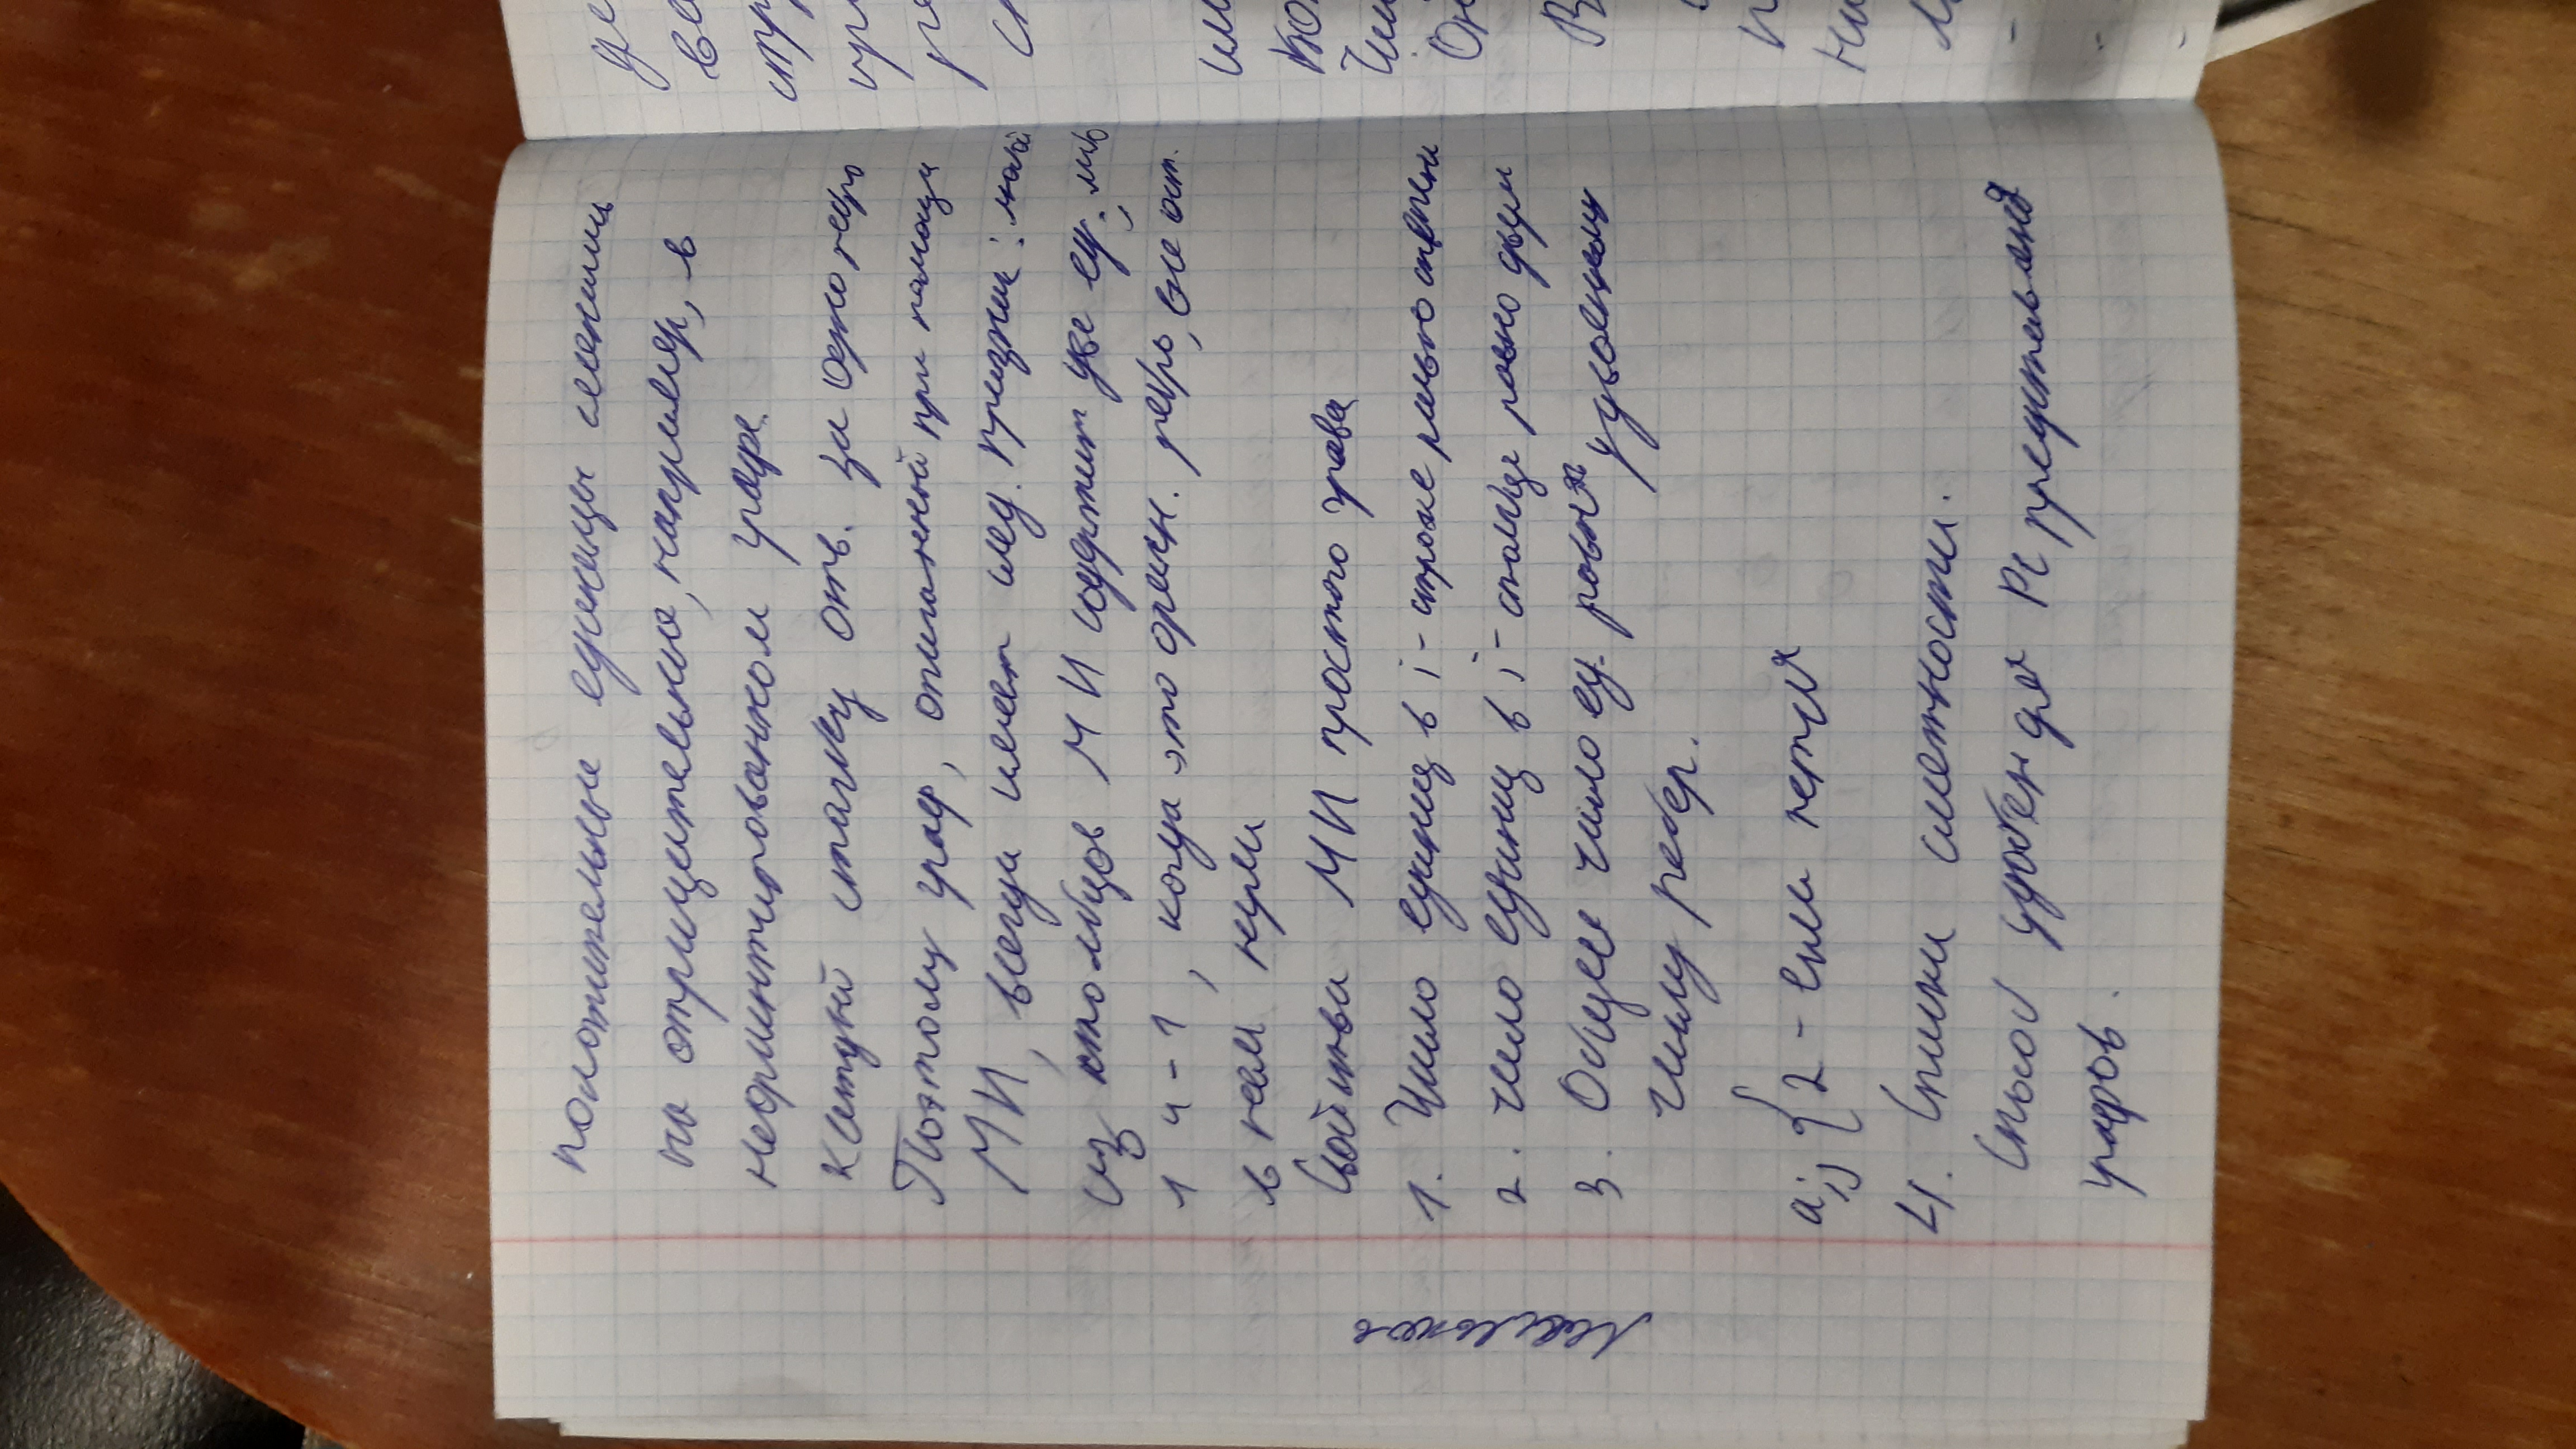 положительные единицы сменили
на отрицательные, например, в
неориентированном графе.
каждый столбец отв. за одно ребро
Поэтому граф, описанный при помощи
МИ, всегда имеет след. признак: любой
из столбцов МИ содержит две ед., либо
1 и -1, когда это ориен. ребро, все ост.
в нем нули
Свойства МИ простого графа
1. Число единиц в i - строке равно степени
2. Число единиц в j - столбце равно двум
3. Общее число ед. равно удвоенному
числу ребер.
aij { 2 - если петля
4. Списки смежности.
Способ удобен для представления
графов.
Мельников